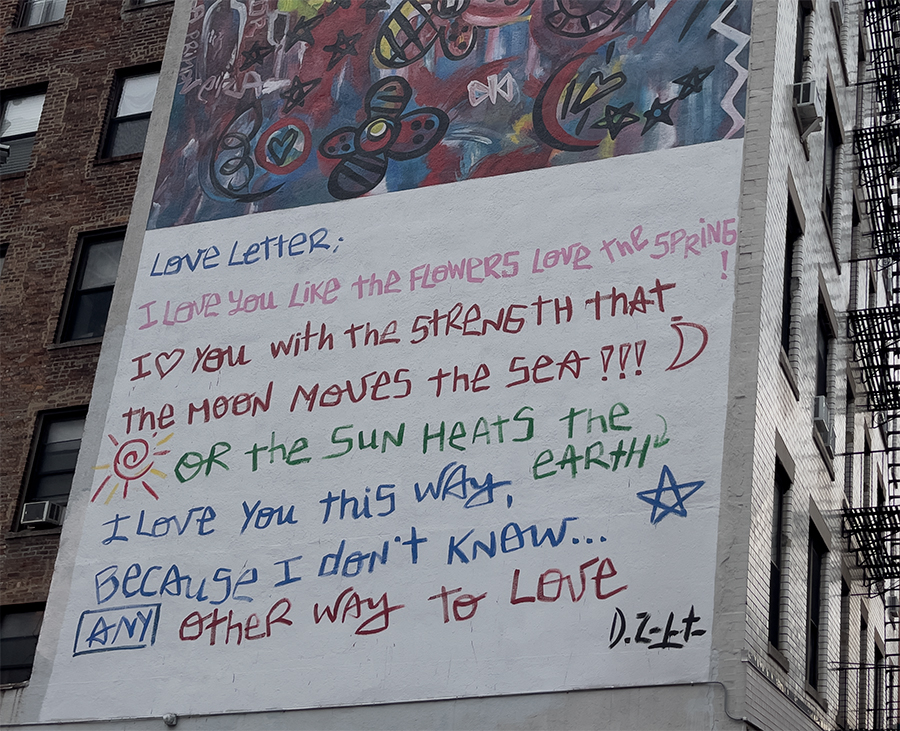 LOVE LETTER;
I LOVE YOU LIKE the FLOWERS LOVE the SPRiNG!
I ♡ YOU with the STRENGTH that
the MOON MOVES the SEA !!!
OR the SUN HEATS the EARTH
I LOVE YOU this WAy,
BECAUSE I don't KNOW...
ANY OtheR WAY to LOVE